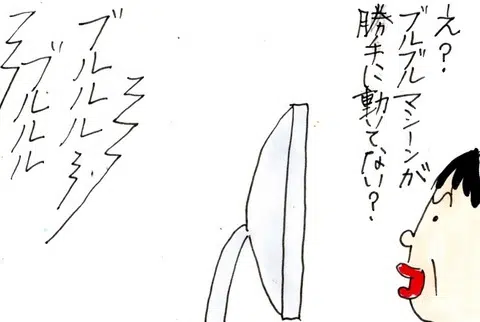 え?
ブルブルマシーンが
勝手に動いてない?
ブルルル
ブルルル